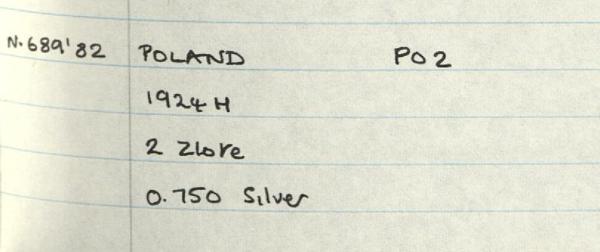 N.689'82 POLAND PO2
1924 H
2 Zlote
0.750 Silver